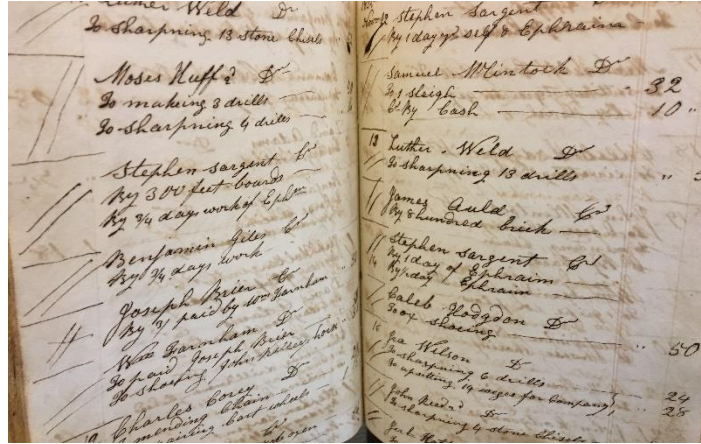 Luther Weld Dr
To sharpning 13 stone Chisels
Moses Huff Dr
To making 3 drills
To sharpning 4 drills
Stephen Sargent Cr
By 300 feet boards
By 3/4 days work of Ephm
Benjamin Giles Cr
By 3/4 days work
Joseph Brier Cr
By 3/ paid by Wm Farnham
Wm Farnham Dr
To paid Joseph Brier
To shoeing John horse
Charles Corey Dr
mending Chain
cart wheels
Stephen Sargent
By 1 day self & Ephraim
Samuel McClintock Dr
To 1 sleigh 32
Cr By Cash 10 "
13 Luther Weld Dr
To sharpning 13 drills "
James Auld Cr
By 8 hundred brick
Stephen Sargent Cr
By 1 day of Ephraim
14 By 1 day Ephraim
Caleb Hodgdon Dr
To ox shoeing 50
16 Ira Wilson Dr
To sharpning 6 drills 24
To upsetting 14 wedges for Company 28
John Dr
To sharpning 4 stone Chisels